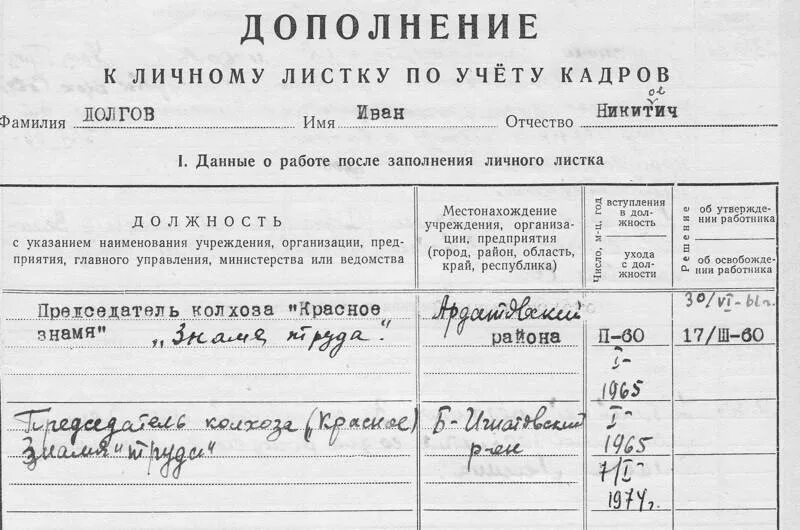 ДОПОЛНЕНИЕ
К ЛИЧНОМУ ЛИСТКУ ПО УЧЁТУ КАДРОВ
Фамилия ДОЛГОВ Имя Иван Отчество Никитич
ое
I. Данные о работе после заполнения личного листка
ДОЛЖНОСТЬ
с указанием наименования учреждения, организации, пред-
приятия, главного управления, министерства или ведомства
Местонахождение
учреждения, организа-
ции, предприятия
(город, район, область,
край, республика)
Число, м-ц, год
вступления
в дол-
жность
ухода
с дол-
жности
Решение
об утвержде-
нии работника
об освобожде-
нии работника
Председатель колхоза "Красное
знамя" „Знамя труда".
Ардатовский
района
П-60
I-
1965
30/VI-61г.
17/Ш-60
Председатель колхоза (Красное)
Знамя "труда"
Б-Игнатовский
р-ен
I-
1965
7/I-
1974г.